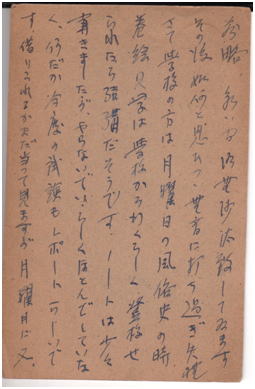 前略、永い間御無沙汰致してゐます
その後如何と思ひつゝ無音に打過ぎ失礼
さて学校の方は月曜日の風俗史の時
絵見学は学校から らしく登校せ
られたら結構だそうです。ノートは少々
書きましたが、やらないでいゝらしくほとんどしていな
く、何だか今度の試験もレポートらしいで
す 借りられるか 当って見ますが 月曜日に又、